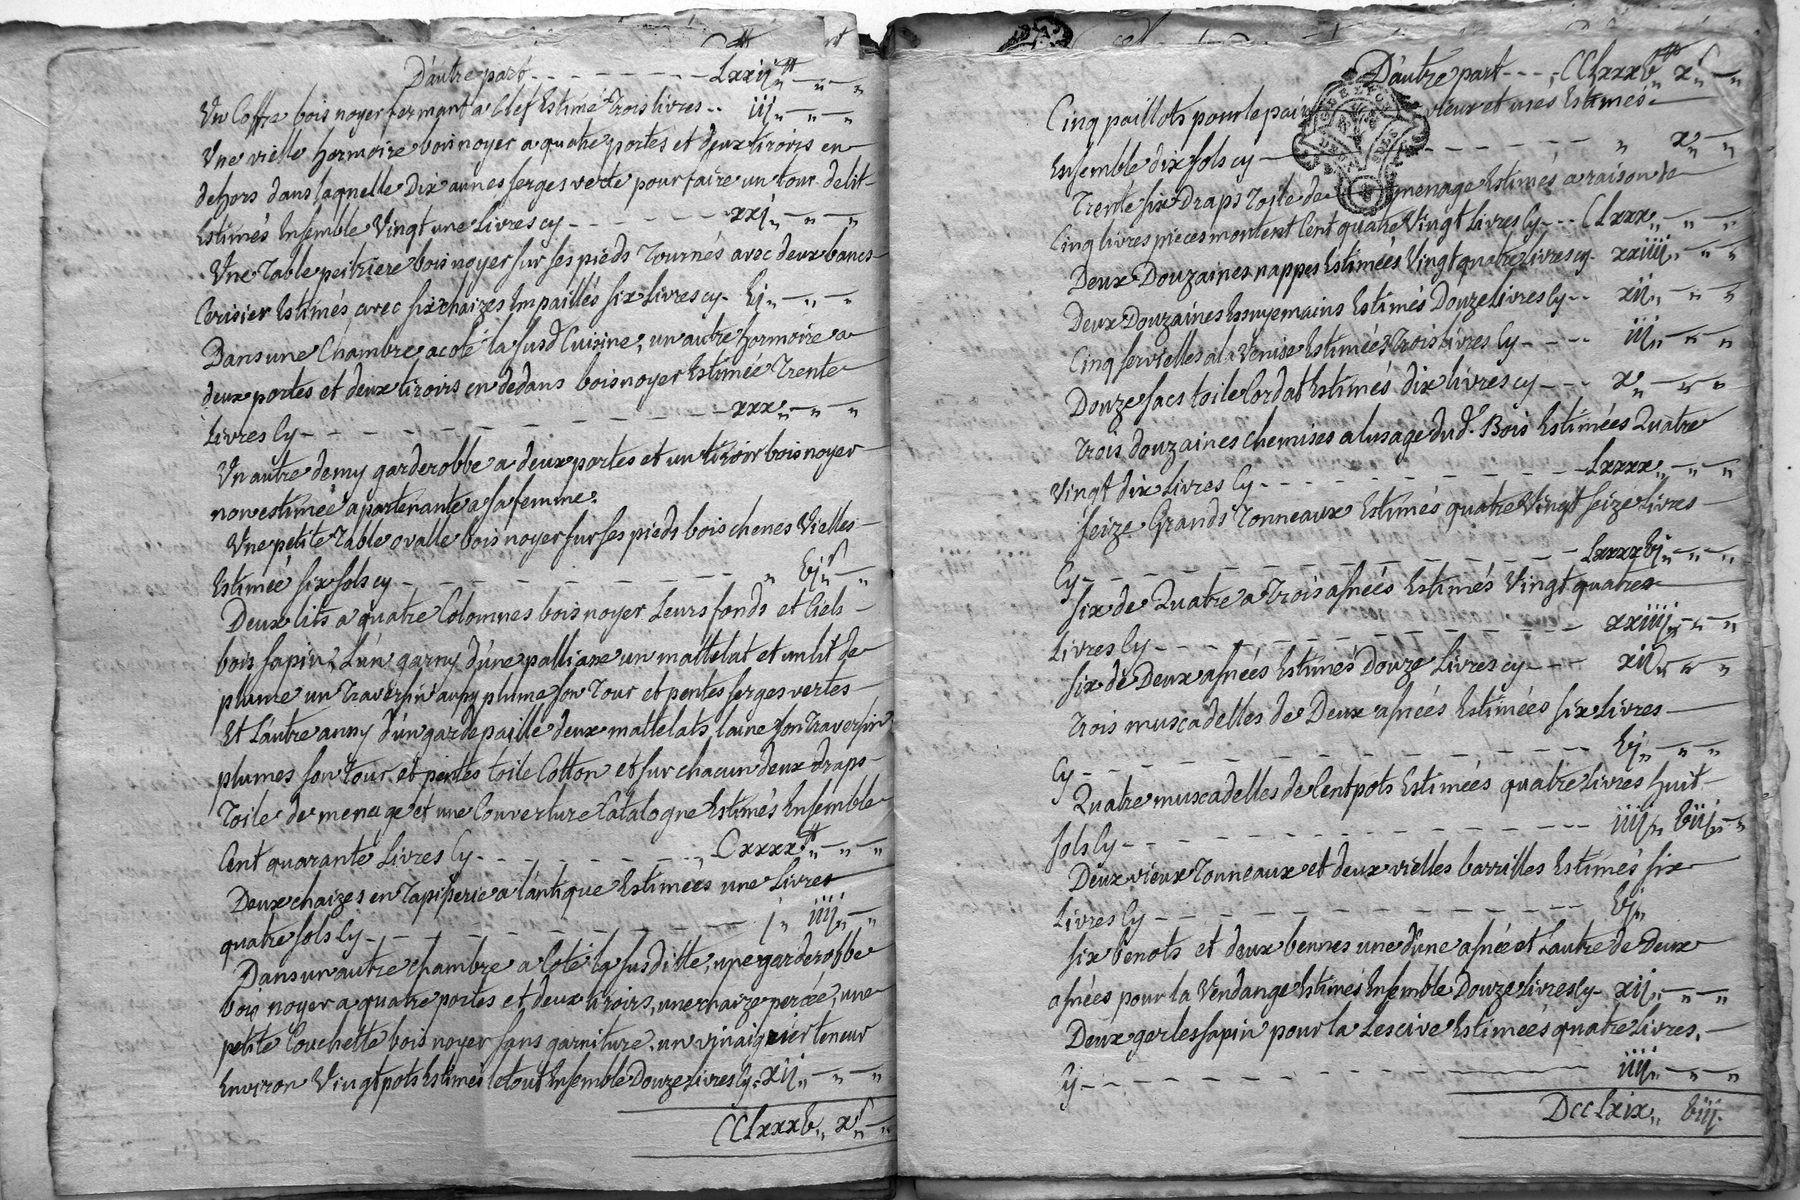 D'autre part - - - - - - - - Lxxij₶ „ - „
Un Coffre bois noyer fermant a Clef Estimé Trois livres - - iij „ - „ - „
Une vielle hormoire bois noyer a quatre portes et deux tiroirs en
dehors dans laquelle Dix aunes serges verte pour faire un tour de lit
Estimés Ensemble Vingt une Livres cy - - - - - xxj „ - „ - „
Une Table peitriere bois noyer sur ses pieds Tournés avec deux bancs
Cerisier Estimés avec six chaizes Empaillés six Livres cy - vj „ - „ - „
Dans une Chambre a coté la susd Cuisine, un autre hormoire a
deux portes et deux tiroirs en dedans bois noyer Estimée Trente
Livres Cy - - - - - - - - xxx „ - „ - „
Un autre demy garderobbe a deux portes et un tiroir bois noyer
non estimée apartenante a sa femme.
Une petite Table ovalle bois noyer sur ses pieds bois chenes Vielles
Estimée six sols cy - - - - - - - - „ vjs „
Deux lits a quatre Colomnes bois noyer Leurs fonds et Ciels
bois sapin, L'un garny d'une palliasse un mattelat et un lit de
plume un Traversin aussy plume son Tour et pentes serges vertes
Et L'autre auny d'un gardepaille deux mattelats laine son Traversin
plumes son Tour et pentes toile Cotton et sur chacun deux draps
Toile de menage et une Couverture Catalogne Estimés Ensemble
Cent quarante Livres Cy - - - - - - - Cxxxx₶ „ - „ - „
Deux chaizes en Tapisserie a l'antique Estimées une Livres
quatre sols Cy - - - - - - - - j „ iiij „ - „
Dans un autre chambre a Coté la susditte, une garderobbe
bois noyer a quatre portes et deux tiroirs, une chaize percée, une
petite Couchette bois noyer sans garniture, un vinaigrier teneur
Environ Vingt pots Estimés le tout Ensemble Douze Livres Cy - xij „ - „ - „
CCLxxxv „ xs „ - „
D'autre part - - - CCLxxxv₶ xs - „
Cinq paillots pour le pain vieux et usés Estimés
Ensemble dix sols cy - - - - - - „ x „ - „
Trente six Draps Toile de menage Estimés a raison de
Cinq livres pieces montent Cent quatre Vingt Livres Cy - - CLxxx „ - „ - „
Deux Douzaines nappes Estimées Vingt quatre livres cy - xxiiij „ - „ - „
Deux Douzaines Essuyemains Estimés Douze livres Cy - - xij „ - „ - „
Cinq servielles a la Venise Estimées Trois Livres Cy - - - - iij „ - „ - „
Douze sacs toile Cordat Estimés dix livres cy - - - x „ - „ - „
Trois douzaines chemises a lusage dud. Sr. Bois Estimées Quatre
Vingt dix Livres Cy - - - - - - - - Lxxxx „ - „ - „
Seize Grands Tonneaux Estimés quatre Vingt Seize Livres
Cy - - - - - - - - Lxxxxvj „ - „ - „
six de Quatre a Trois asnées Estimés Vingt quatres
Livres Cy - - - - - - - - xxiiij „ - „ - „
six de Deux asnées Estimés Douze Livres cy - - - xij „ - „ - „
Trois muscadelles de Deux asnées Estimées six Livres
Cy - - - - - - - - vj „ - „ - „
Quatre muscadelles de Cent pots Estimées quatre Livres huit
sols Cy - - - - - - - - iiij „ viij „ - „
Deux vieux Tonneaux et deux vielles barrilles Estimés six
Livres Cy - - - - - - - - vj „
Six benots et deux bennes une d'une asnée et L'autre de Deux
asnées pour la Vendange Estimés Ensemble Douze Livres Cy - xij „ - „ - „
Deux gerles sapin pour la Lescive Estimées quatre Livres.
Cy - - - - - - - - iiij „ - „ - „
DccLxix „ viij.